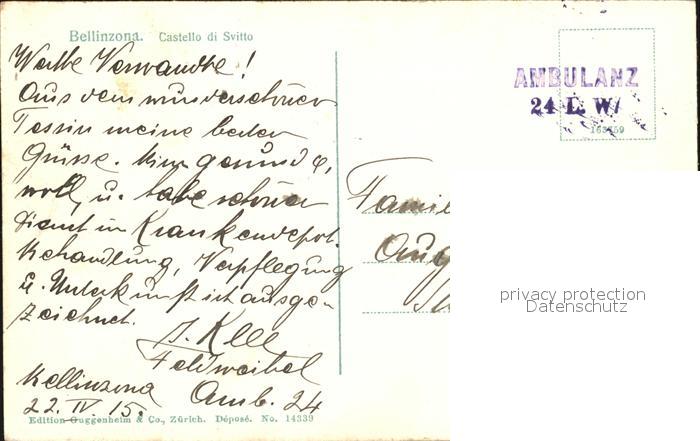 Bellinzona. Castello di Svitto
Werthe Verwandte!
Aus dem wunderschönen
Tessin meine besten
Grüsse. Bin gesund &
wohl, u. habe schönen
Dienst im Krankendepot.
Behandlung, Verpflegung
u. Unterkunft ist ausge-
zeichnet.
J. Klee
Feldweibel
Amb. 24
Bellinzona
22. IV. 15.
Edition Guggenheim & Co., Zürich. Déposé. No. 14339
AMBULANZ
24 L. W.
Famil
Aug
privacy protection
Datenschutz